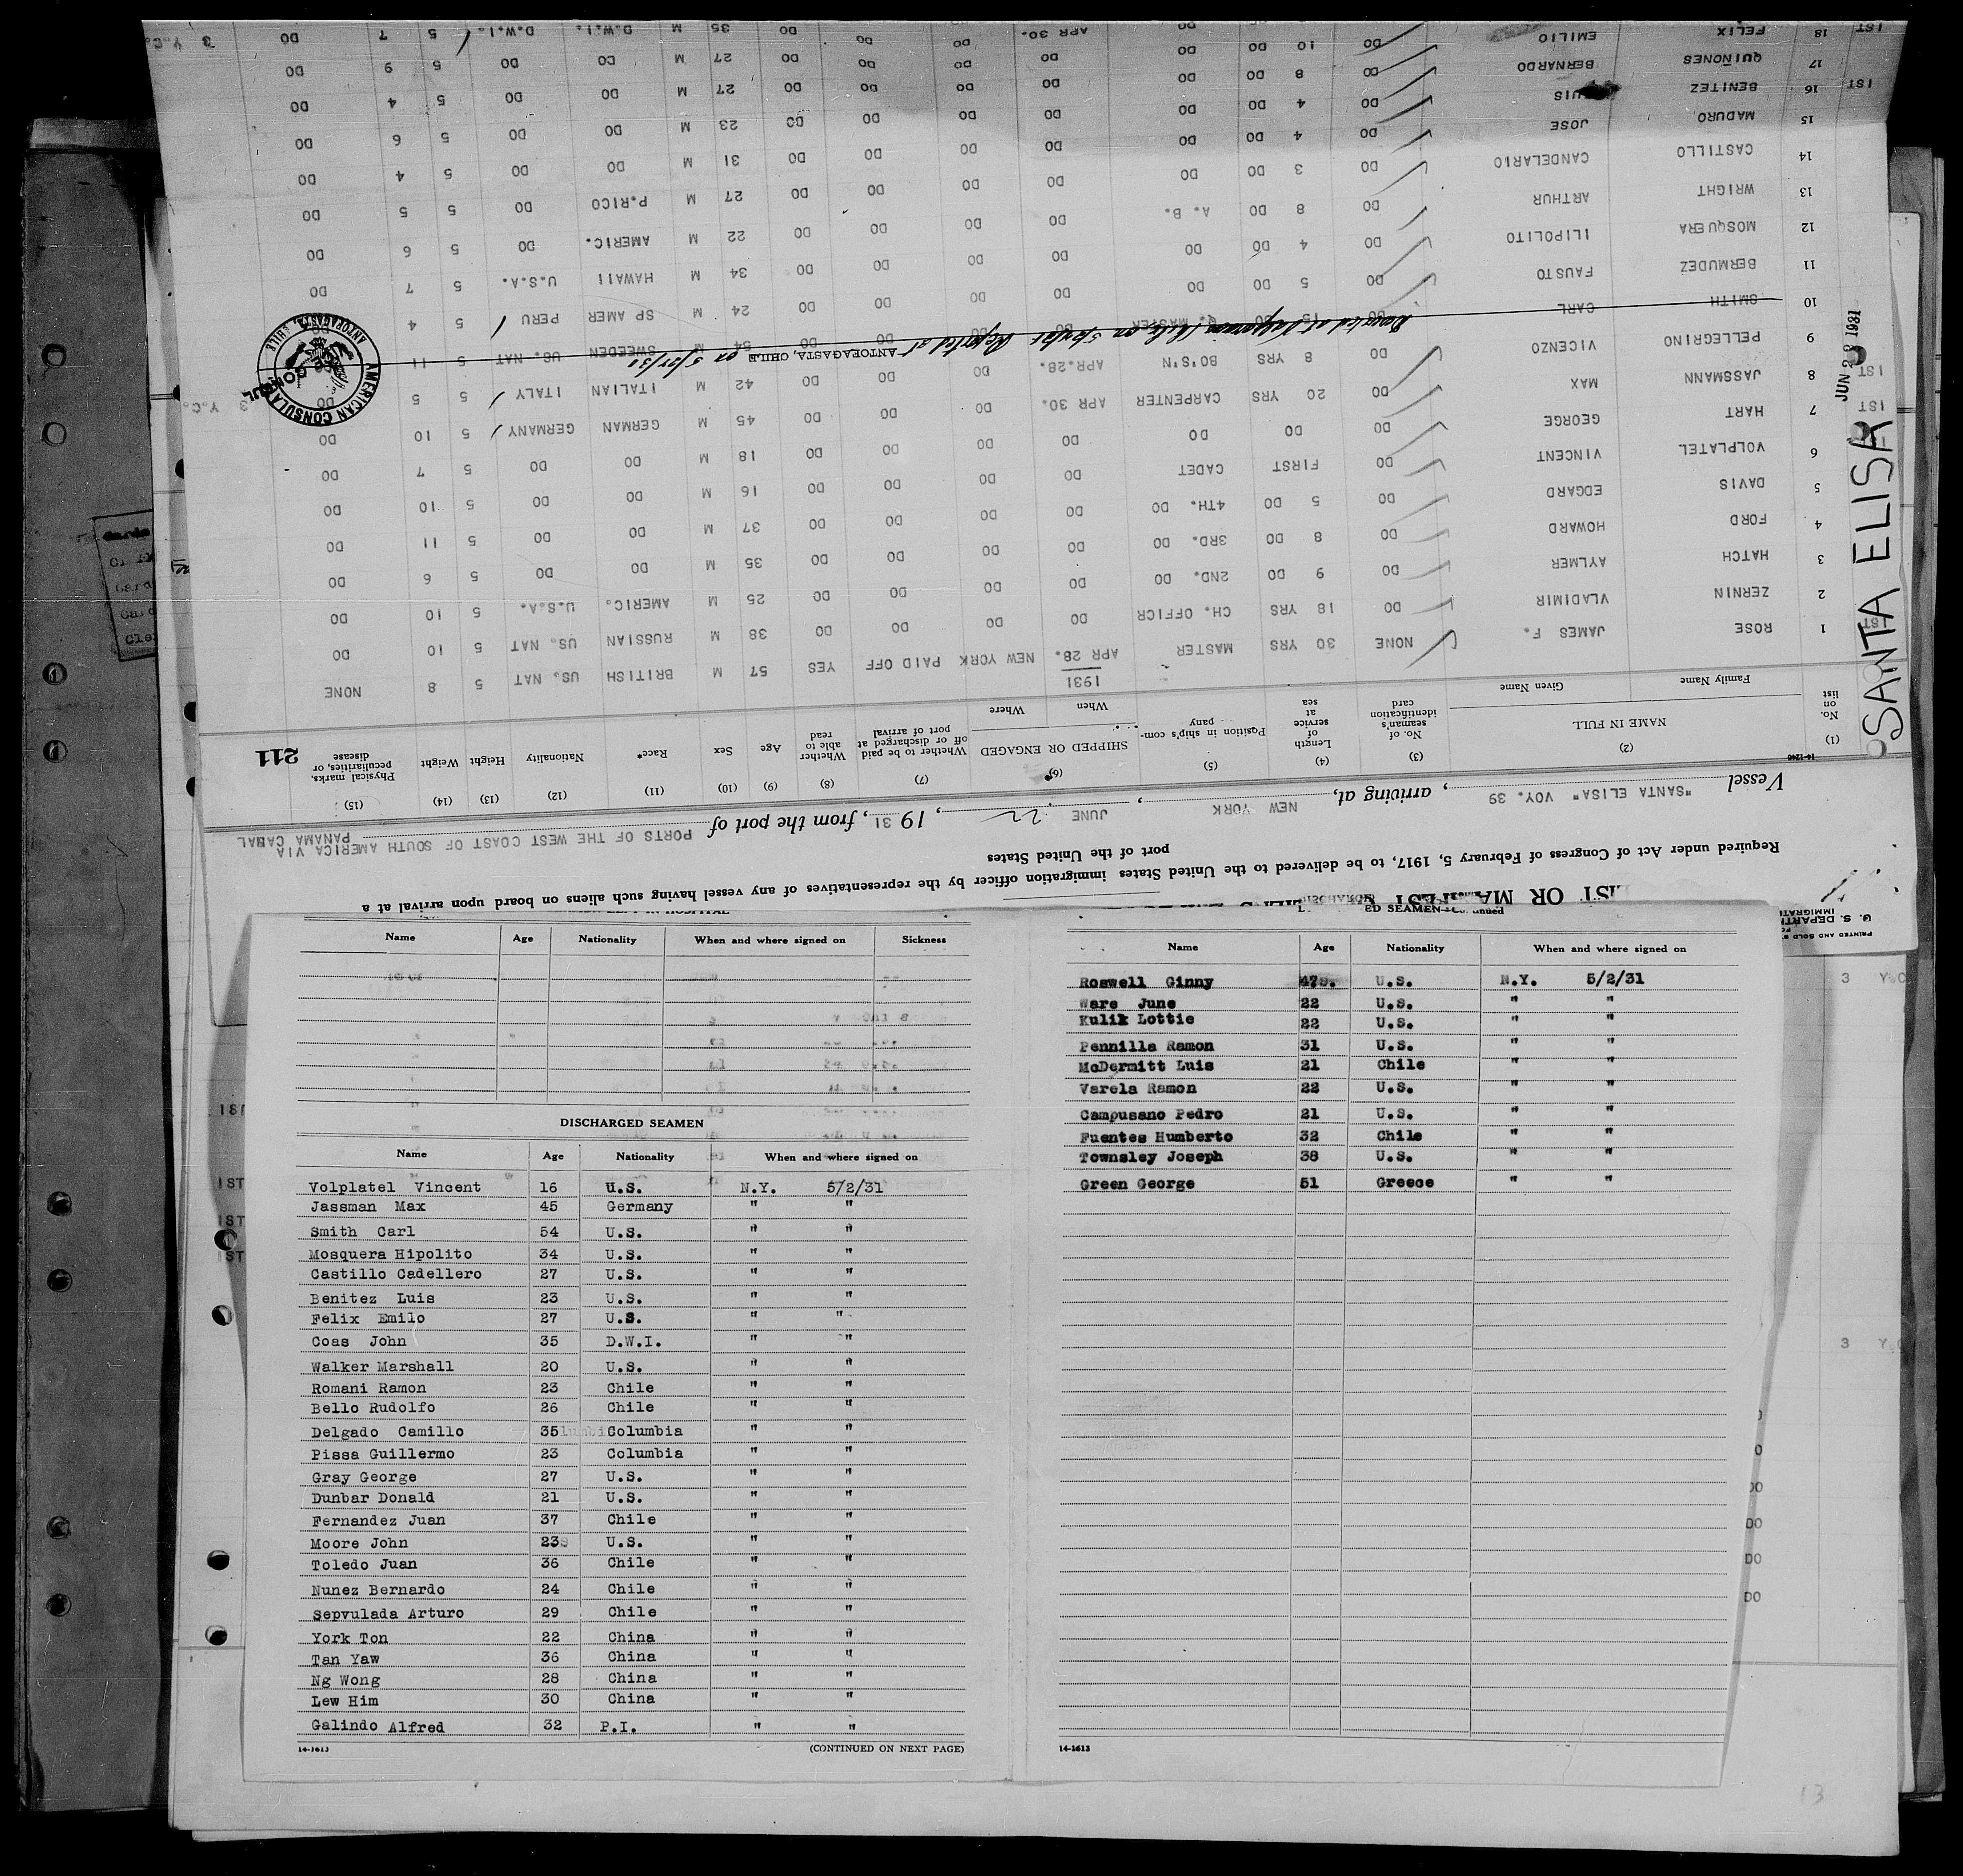 Required under Act of Congress of February 5, 1917, to be delivered to the United States immigration officer by the representatives of any vessel having such aliens on board upon arrival at a
port of the United States
Vessel "SANTA ELISA" VOY. 39, arriving at, NEW YORK, JUNE 22, 1931, from the port of PORTS OF THE WEST COAST OF SOUTH AMERICA VIA
PANAMA CANAL
14-1240
(1) No. on list (2) NAME IN FULL Family Name Given Name (3) No. of seaman's identification card (4) Length of service at sea (5) Position in ship's company (6) SHIPPED OR ENGAGED When Where (7) Whether to be paid off or discharged at port of arrival (8) Whether able to read (9) Age (10) Sex (11) Race* (12) Nationality (13) Height (14) Weight (15) Physical marks, peculiarities, or disease
211
1931
1 ROSE JAMES F. NONE 30 YRS MASTER APR 28. NEW YORK PAID OFF YES 57 M BRITISH US. NAT 5 8 NONE
2 ZERNIN VLADIMIR DO 18 YRS CH. OFFICR DO DO DO DO 38 M RUSSIAN US. NAT 5 10 DO
3 HATCH AYLMER DO 9 DO 2ND. DO DO DO DO DO 25 M AMERIC. U.S.A. 5 10 DO
4 FORD HOWARD DO 8 DO 3RD. DO DO DO DO DO 35 M DO DO 5 6 DO
5 DAVIS EDGARD DO 5 DO 4TH. DO DO DO DO DO 37 M DO DO 5 11 DO
6 VOLPLATEL VINCENT DO FIRST CADET DO DO DO DO 16 M DO DO 5 10 DO
7 HART GEORGE DO DO DO DO DO DO DO 18 M DO DO 5 7 DO
8 JASSMANN MAX DO 20 YRS CARPENTER APR 30. DO DO DO 45 M GERMAN GERMANY 5 10 DO
9 PELLEGRINO VICENZO DO 8 YRS BO'S'N APR.28. DO DO DO 42 M ITALIAN ITALY 5 5 DO
10 SMITH CARL DO 15 DO Q. MASTER DO DO DO DO 54 M SWEDEN US. NAT 5 11 DO
ANTOFAGASTA, CHILE on 5/21/31
11 BERMUDEZ FAUSTO DO 5 DO DO DO DO DO DO 24 M SP AMER PERU 5 4 DO
12 MOSQUERA ILIPOLITO DO 4 DO DO DO DO DO DO 34 M HAWAII U.S.A. 5 7 DO
13 WRIGHT ARTHUR DO 8 DO A. B. DO DO DO DO 22 M AMERIC. DO 5 6 DO
14 CASTILLO CANDELARIO DO 3 DO DO DO DO DO DO 27 M P.RICO DO 5 5 DO
15 MADURO JOSE DO 4 DO DO DO DO DO DO 31 M DO DO 5 4 DO
16 BENITEZ LUIS DO 4 DO DO DO DO DO DO 23 M DO DO 5 6 DO
17 QUIÑONES BERNARDO DO 8 DO DO DO DO DO DO 27 M DO DO 5 4 DO
18 FELIX EMILIO DO 10 DO DO DO DO DO DO 27 M DO DO 5 9 DO
APR 30. DO DO DO 35 M D.W.I. D.W.I. 5 7 DO
AMERICAN CONSULAR
ANTOFAGASTA, CHILE
JUN 22 1931
SANTA ELISA
Name Age Nationality When and where signed on Sickness
DISCHARGED SEAMEN
Name Age Nationality When and where signed on
Volplatel Vincent 16 U.S. N.Y. 5/2/31
Jassman Max 45 Germany " "
Smith Carl 54 U.S. " "
Mosquera Hipolito 34 U.S. " "
Castillo Cadellero 27 U.S. " "
Benitez Luis 23 U.S. " "
Felix Emilo 27 U.S. " "
Coas John 35 D.W.I. " "
Walker Marshall 20 U.S. " "
Romani Ramon 23 Chile " "
Bello Rudolfo 26 Chile " "
Delgado Camillo 35 Columbia " "
Pissa Guillermo 23 Columbia " "
Gray George 27 U.S. " "
Dunbar Donald 21 U.S. " "
Fernandez Juan 37 Chile " "
Moore John 23 U.S. " "
Toledo Juan 36 Chile " "
Nunez Bernardo 24 Chile " "
Sepvulada Arturo 29 Chile " "
York Ton 22 China " "
Tan Yaw 36 China " "
Ng Wong 28 China " "
Lew Him 30 China " "
Galindo Alfred 32 P.I. " "
14-1613 (CONTINUED ON NEXT PAGE)
Name Age Nationality When and where signed on
Roswell Ginny 47 U.S. N.Y. 5/2/31
Ware June 22 U.S. " "
Kulik Lottie 22 U.S. " "
Pennilla Ramon 31 U.S. " "
McDermitt Luis 21 Chile " "
Varela Ramon 22 U.S. " "
Campusano Pedro 21 U.S. " "
Fuentes Humberto 32 Chile " "
Townsley Joseph 38 U.S. " "
Green George 51 Greece " "
14-1613
13